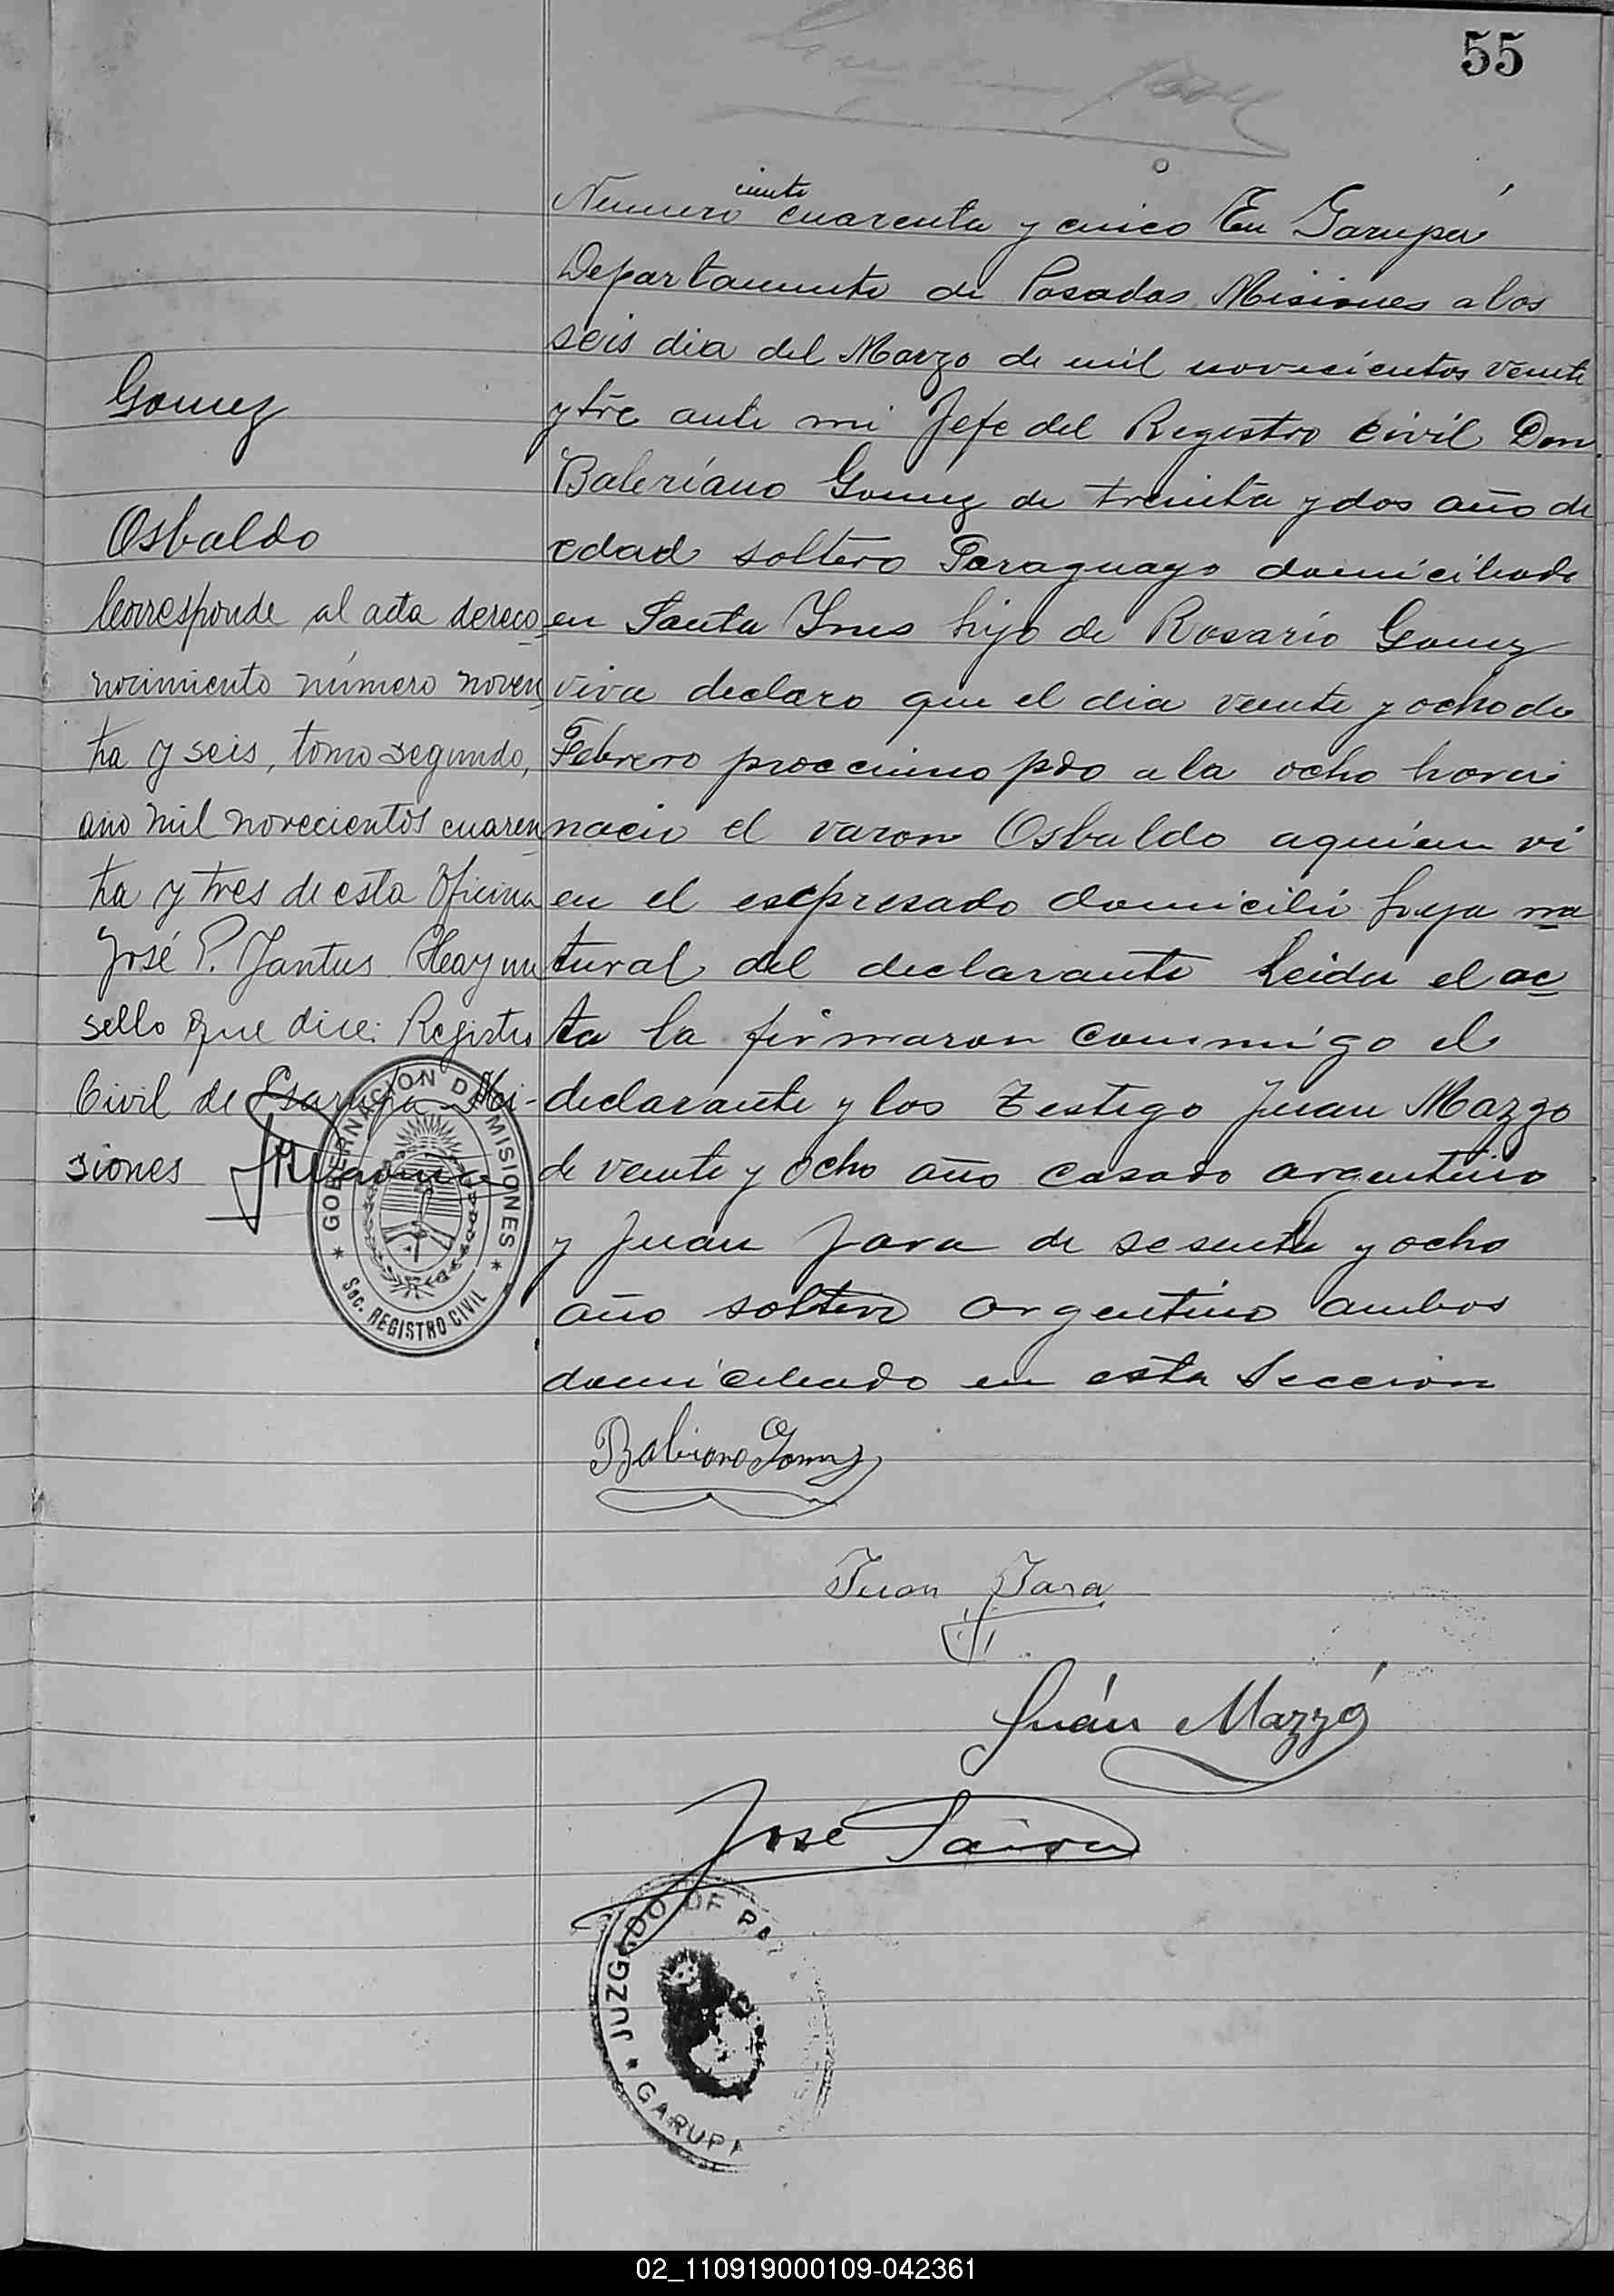 55
Numero ciento cuarenta y cinco En Garupá
Departamento de Posadas Misiones a los
seis dia del Marzo de mil novecientos veinte
y tre ante mi Jefe del Registro Civil Don
Baleriano Gomez de treinta y dos año de
edad soltero Paraguayo domiciliado
en Santa Ines hijo de Rosario Gomez
viva declaro que el dia veinte y ocho de
Febrero procsimo pdo a la ocho hora
nacio el varon Osbaldo aquien vi
en el escpresado domicilio na
tural del declarante Leida el ac
ta la firmaron conmigo el
declarante y los Testigo Juan Mazzo
de veinte y ocho año casado argentino
y Juan Jara de sesenta y ocho
año soltero argentino ambos
domiciliado en esta Seccion
Gomez
Osbaldo
Corresponde al acta de reco
nocimiento número noven
ta y seis, tomo segundo,
año mil novecientos cuaren
ta y tres de esta Oficina
José P. Jantus Hay un
sello que dice: Registro
Civil de Garupá Mi-
siones
GOBERNACION DE MISIONES
Soc. REGISTRO CIVIL
Balviano Gomez
Juan Jara
Juán Mazzó
José
JUZGADO DE PA
GARUPA
02_110919000109-042361